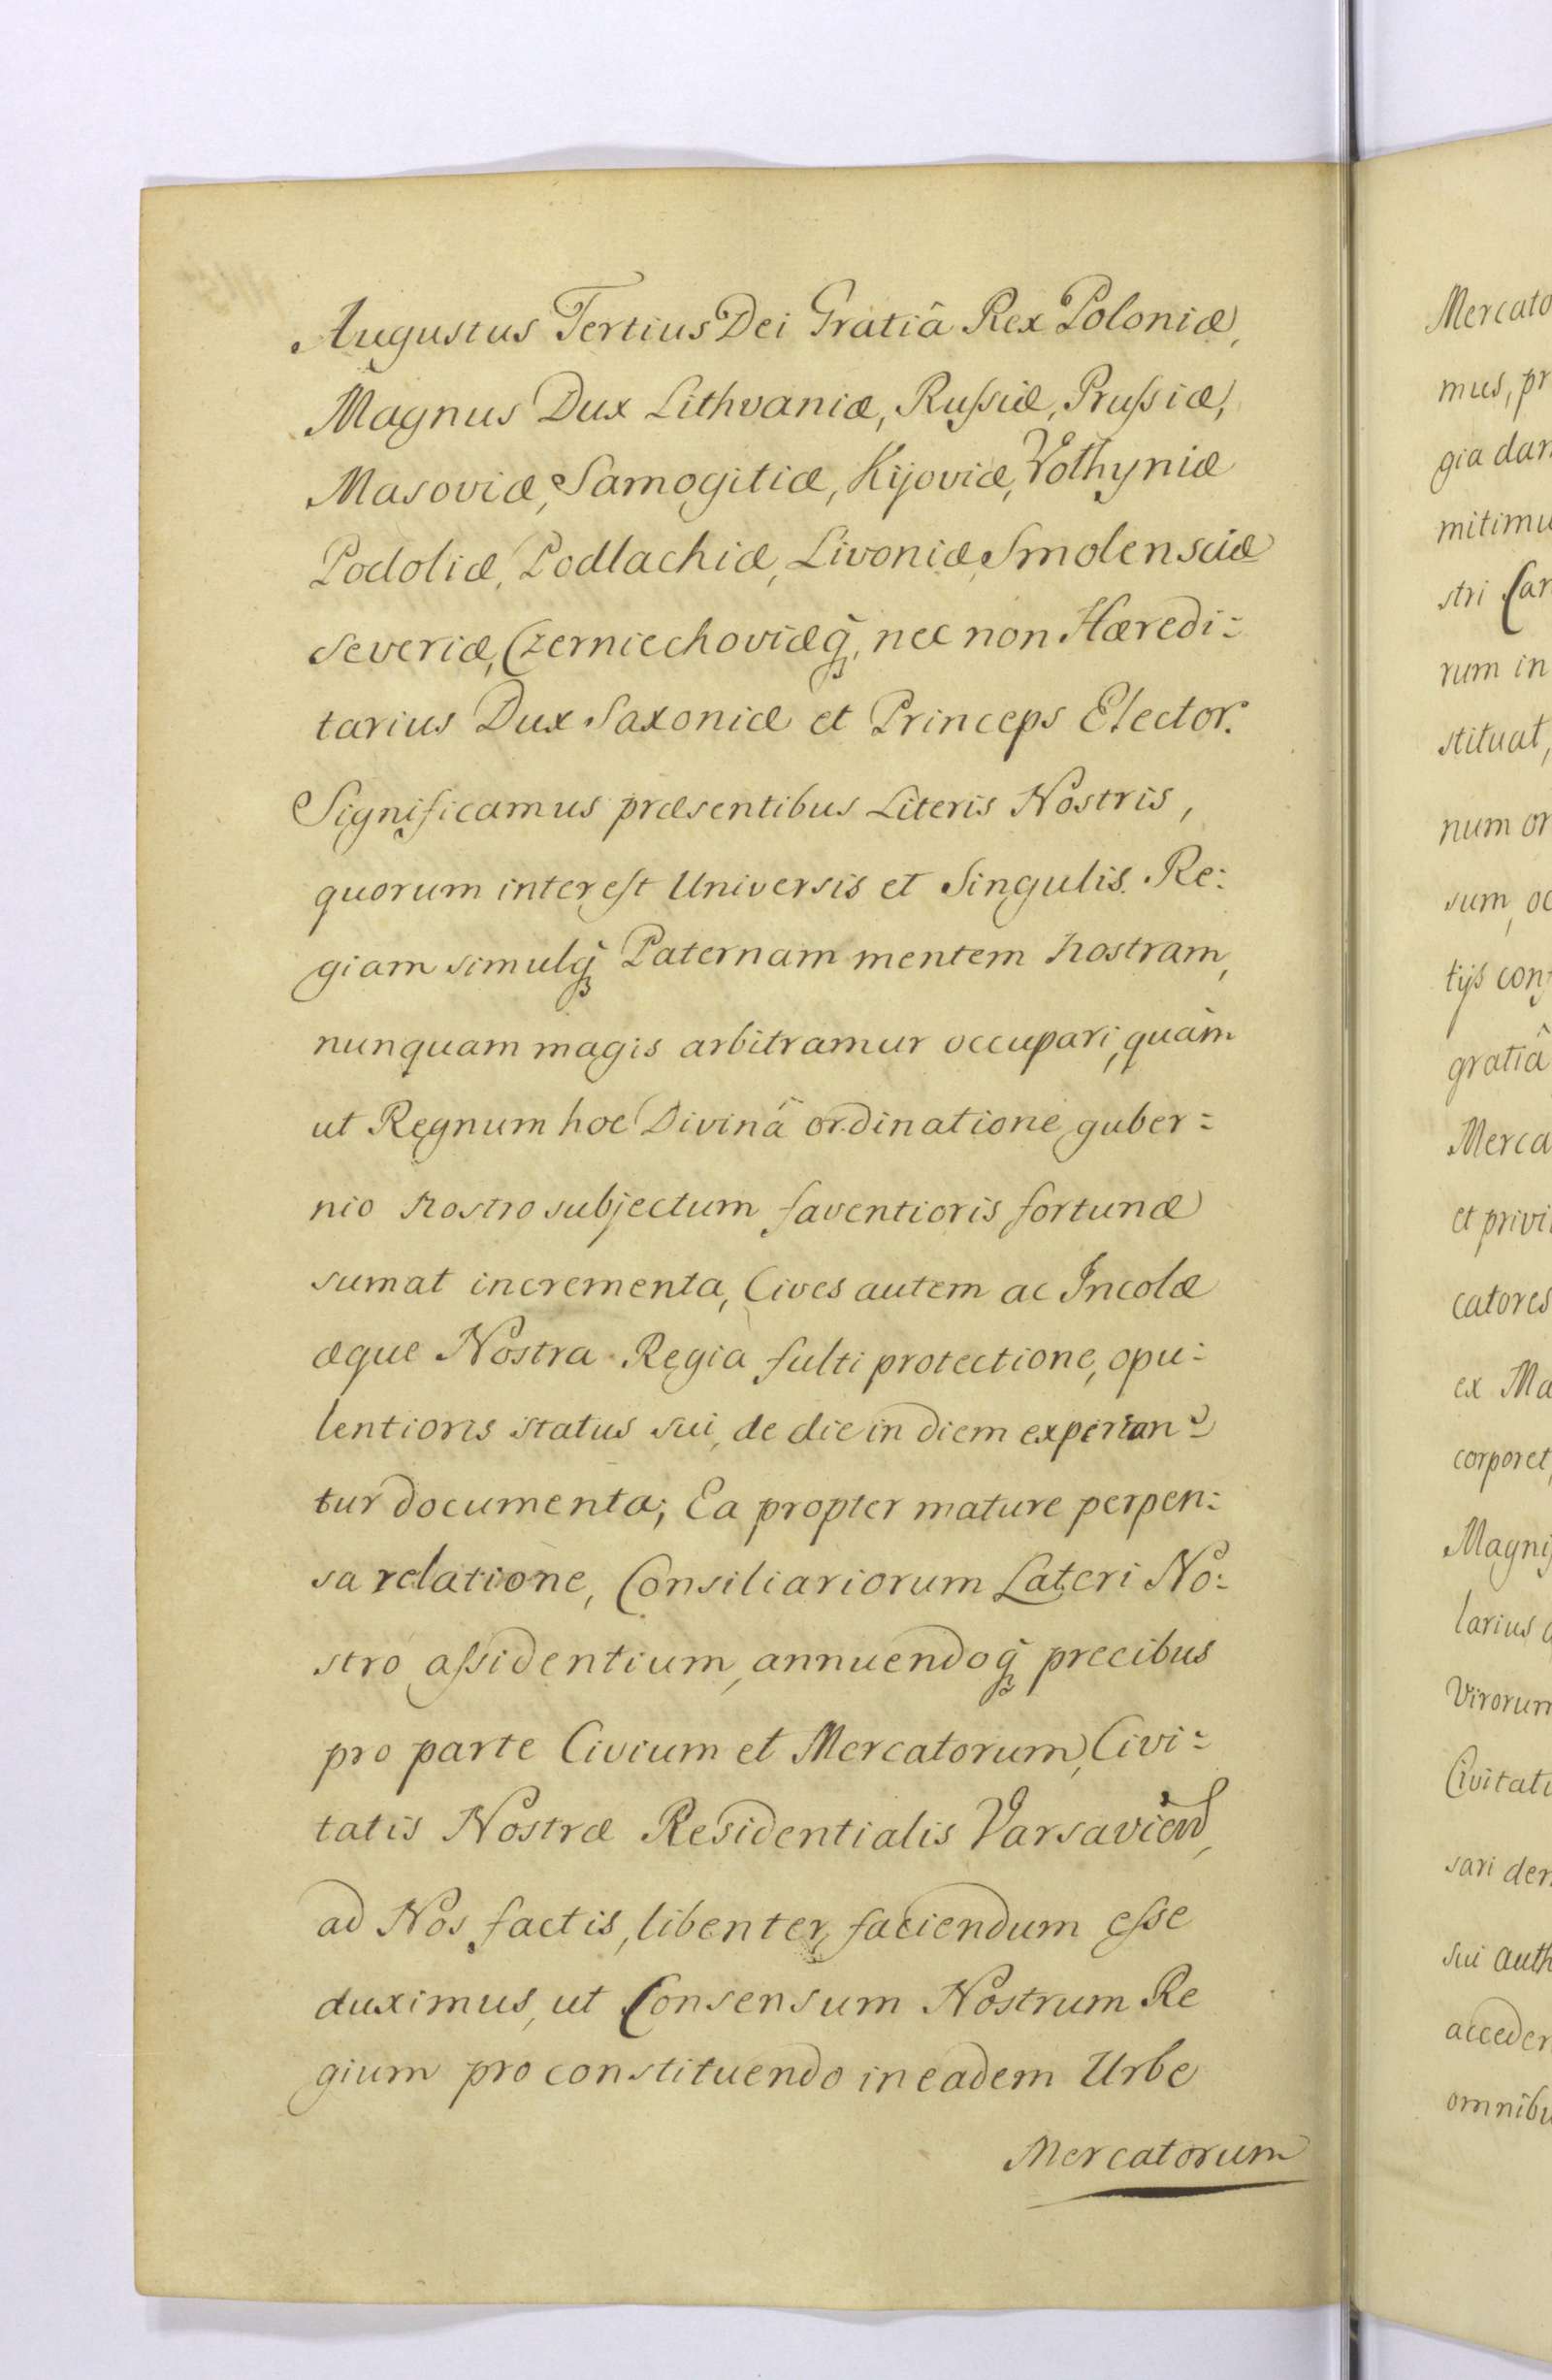 Augustus Tertius Dei Gratiâ Rex Poloniæ,
Magnus Dux Lithvaniæ, Rußiæ, Prußiæ,
Masoviæ, Samogitiæ, Kijoviæ, Volhyniæ
Podoliæ, Podlachiæ, Livoniæ, Smolensciæ
Severiæ, Czerniechoviæq̃, nec non Hæredi=
tarius Dux Saxoniæ et Princeps Elector.
Significamus præsentibus Literis Nostris,
quorum interest Universis et Singulis. Re=
giam simulq̃ Paternam mentem nostram,
nunquam magis arbitramur occupari, quàm
ut Regnum hoc Divinâ ordinatione guber=
nio nostro subjectum faventioris fortunæ
sumat incrementa, Cives autem ac Incolæ
æque Nostra Regia fulti protectione, opu=
lentioris status sui, de die in diem experian=
tur documenta; Ea propter mature perpen=
sa relatione, Consiliariorum Lateri No=
stro aßidentium, annuendoq̃ precibus
pro parte Civium et Mercatorum, Civi=
tatis Nostræ Residentialis Varsavien̄,
ad Nos factis, libenter faciendum eße
duximus, ut Consensum Nostrum Re
gium pro constituendo in eadem Urbe
Mercatorum
Mercato
mus, pr
gia dan
mitimu
stri Can
rum in
stituat,
num or
sum, oc
tijs conf
gratiâ
Merca
et privi
catores
ex Ma
corporet,
Magnif
larius
Virorum
Civitati
sari der
sui auth
acceder
omnibu